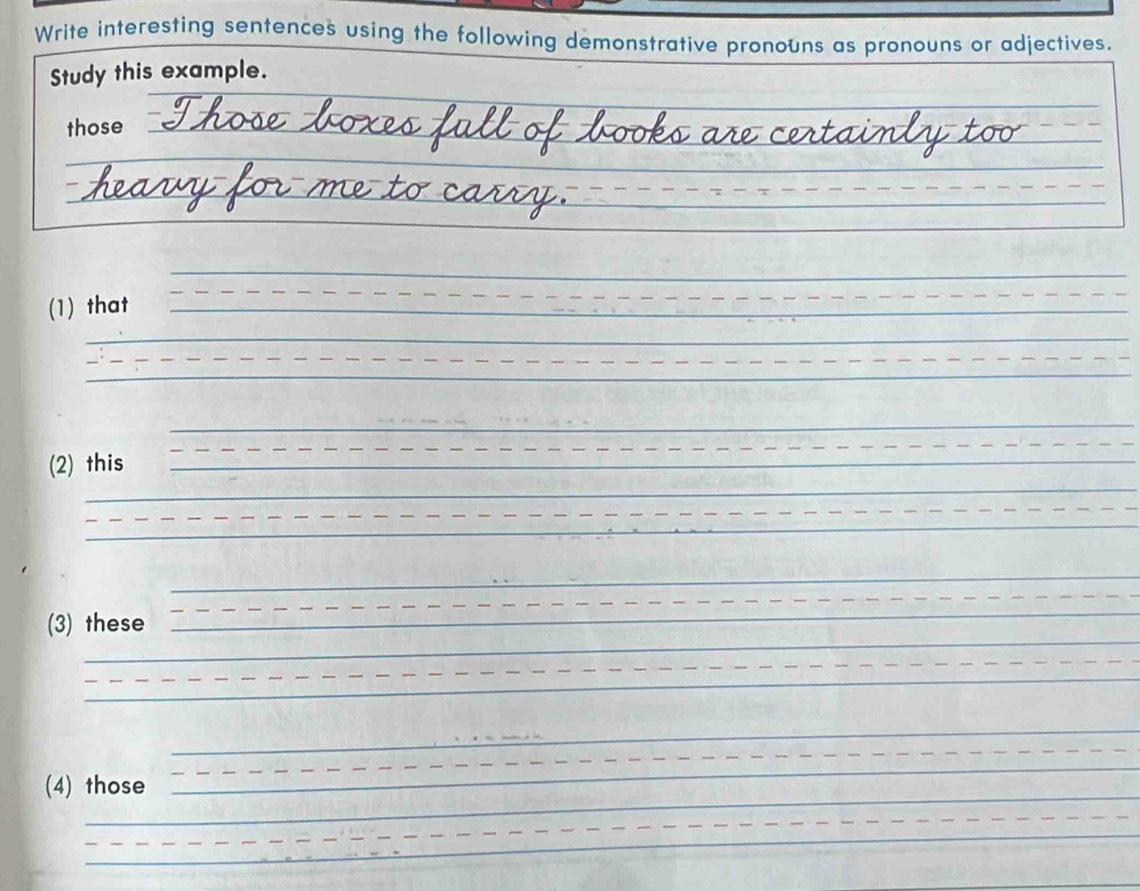 Write interesting sentences using the following demonstrative pronouns as pronouns or adjectives.
Study this example.
those Those boxes full of books are certainly too
heavy for me to carry.
(1) that
(2) this
(3) these
(4) those